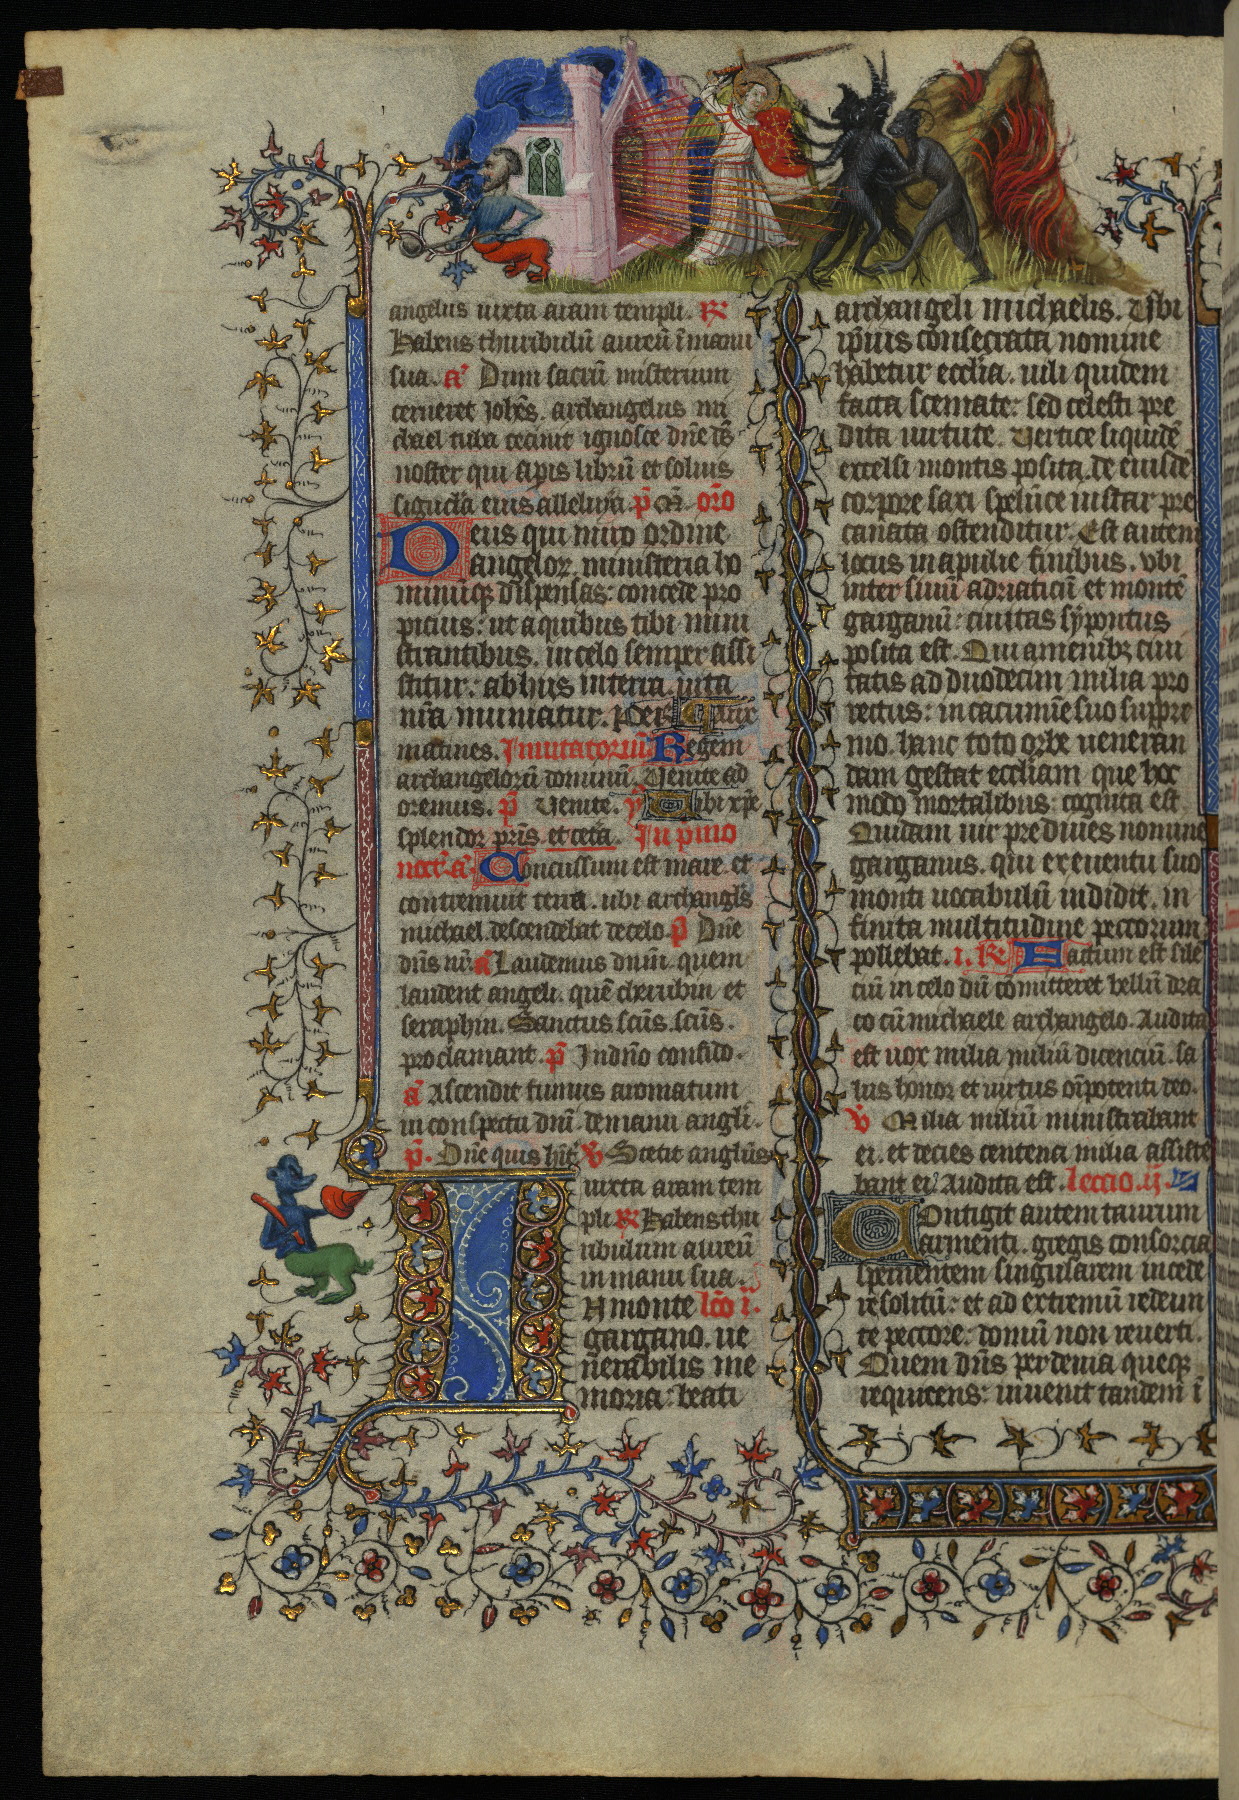 angelus iuxta aram templi. R
habens thuribulū aureū ī manu
sua. a Dum sacrū misterium
cerneret iohēs. archangelus mi
chael tuba cecinit ignosce dn̄e dš
noster qui apis librū et soluis
signacla eius alleluya. p̄ M̄. or̄o
Deus qui miro ordine
angelor. ministeria ho
minūq; dispensas: concede pro
picius: ut a quibus tibi mini
strantibus. in celo semper assi
stitur: ab hiis in terra. uita
nr̄a muniatur. p
matines. Inuitatoriū Regem
archangelorū dominū. Venite ad
oremus. p̄ Venite. y Tibi xp̄e
splendor pr̄is. et cetā. In pīno
noct. a. Concussum est mare. et
contremuit terra. ubi archangl̄s
michael. descendebat de celo. p̄ Dn̄e
dn̄s nr̄. a Laudemus dn̄m. quem
laudent angeli. quē cherubin et
seraphin. Sanctus sc̄us. sc̄us.
proclamant. p̄ In dn̄o confido.
a Ascendit fumus aromatum
in conspectu dn̄i. de manu angli.
p̄. Dn̄e quis hīt. V Stetit anglūs
iuxta aram tem
pli R Habens thu
ribulum aureū
in manu sua.
In monte lc̄o i.
gargano. ue
nerabilis me
moria: beati
archangeli michaelis. Vbi
ip̄ius consecrata nomine
habetur eccl̄ia. uili quidem
facta scemate: sed celesti pre
dita uirtute. Vertice siquidē
excelsi montis posita. de eiusdē
corpore saxi spelūce instar pre
cauata ostenditur. Est autem
locus in apulie finibus. vbi
inter sinū adriaticū et montē
garganū: ciuitas sypontus
posita est. Qui a menibz ciui
tatis ad duodecim milia pro
rectus: in cacumīe suo supre
mo. hanc toto orbe ueneran
dam gestat eccl̄iam que hoc
modo mortalibus: cognita est.
Quidam uir prediues nomine
garganus. qui ex euentu suo
monti uocabulū indidit. in
finita multitudine peccorum
pollebat. i. R Factum est sile
ciū in celo dū comitteret bellū dra
co cū michaele archangelo. Audita
est uox milia miliū dicenciū. sa
lus honor et uirtus om̄potenti deo.
V Milia miliū ministrabant
ei. et decies centena milia assiste
bant ei. Audita est. leccio. ij.
Contigit autem taurum
armenti. gregis consorcia
spernentem singularem incede
re solitū: et ad extremū redeun
te peccore: domū non reuerti.
Quem dn̄s per deuia queq;
requirens: inuenit tandem ī